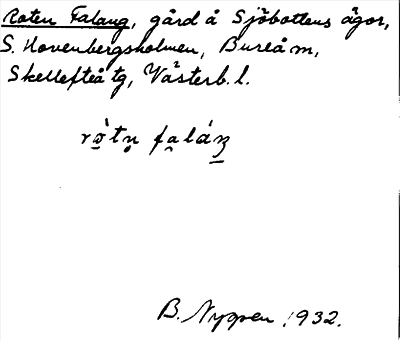 Roten Falang, gård å Sjöbottens ägor,
S. Hovenbergsholmen, Bureå m,
Skellefteå tg, Västerb. l.
rò̱tn̥ fa̮láŋ
B. Nygren 1932.